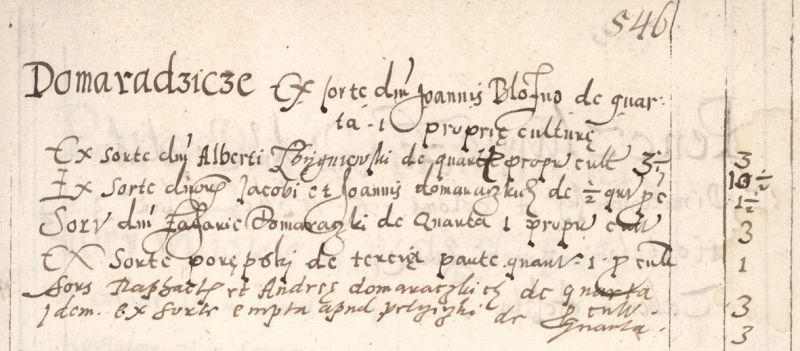 546
Domaradzicze Ex sorte dm Joannis Blozno de quar- 3
ta 1 proprię culturę
Ex sorte dm Alberti Zbigniewski de quart propri cult 3½ 10½
Ex sorte dnorum Jacobi et Joannis domaraczkich de ½ qur p c 1½
Sors dm Zacharie Domaraczki de Quarta 1 propri cult 3
Ex sorte porępski de tercia parte quart 1 p cult 1
Sors Raphaelis et Andreę domaraczkich de quarta cult 3
Idem ex sorte empta apud de quarta 3